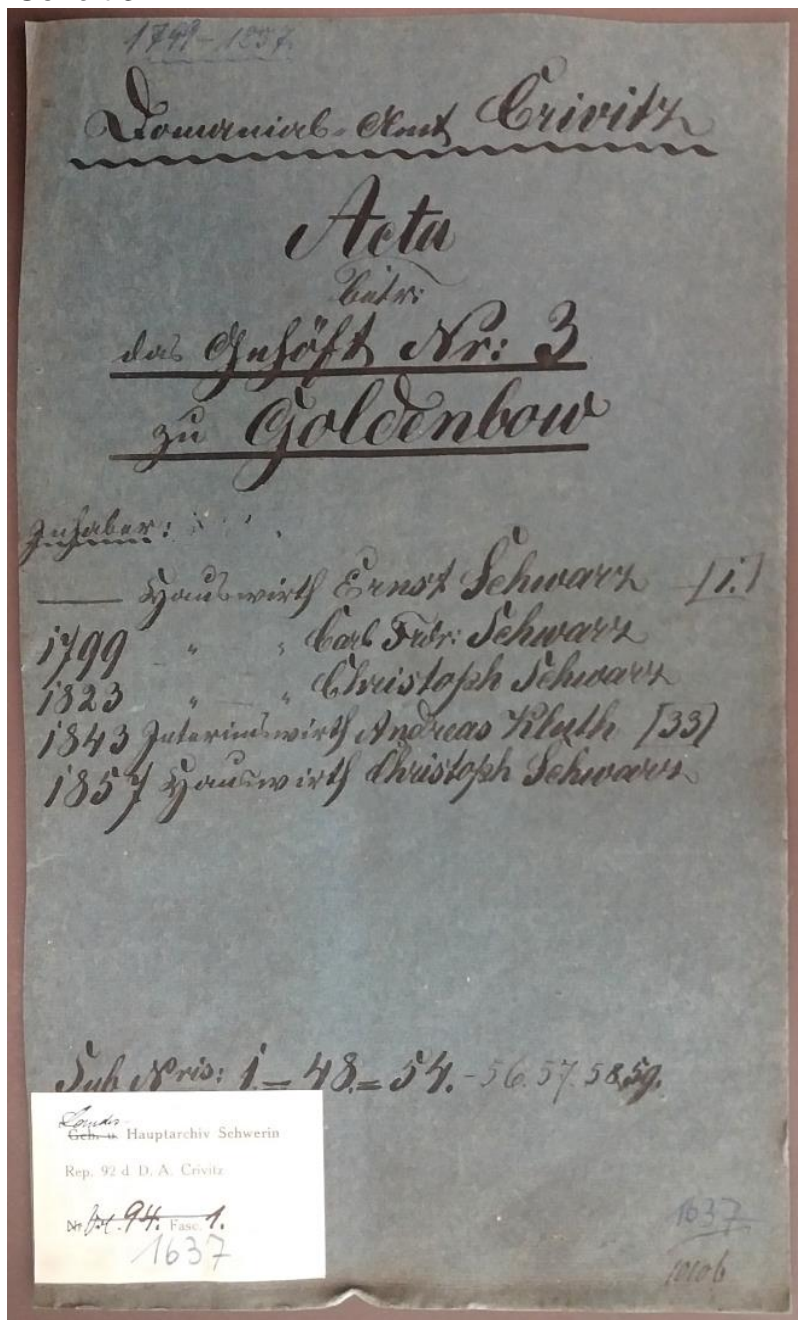 1799-1857
Domanial-Amt Crivitz
Acta
betr:
das Gehöft Nr: 3
zu Goldenbow
Inhaber:
— Hauswirth Ernst Schwarz [1.]
1799 " " Carl Frdr: Schwarz
1823 " " Christoph Schwarz
1843 Interimswirth Andreas Kluth [33]
1857 Hauswirth Christoph Schwarz
Sub Nris: 1.- 48.= 54.-56.57.58.59.
Landes-
Geh. u. Hauptarchiv Schwerin
Rep. 92 d D. A. Crivitz
Nr. Vol. 94. Fasc. 1.
1637
1637